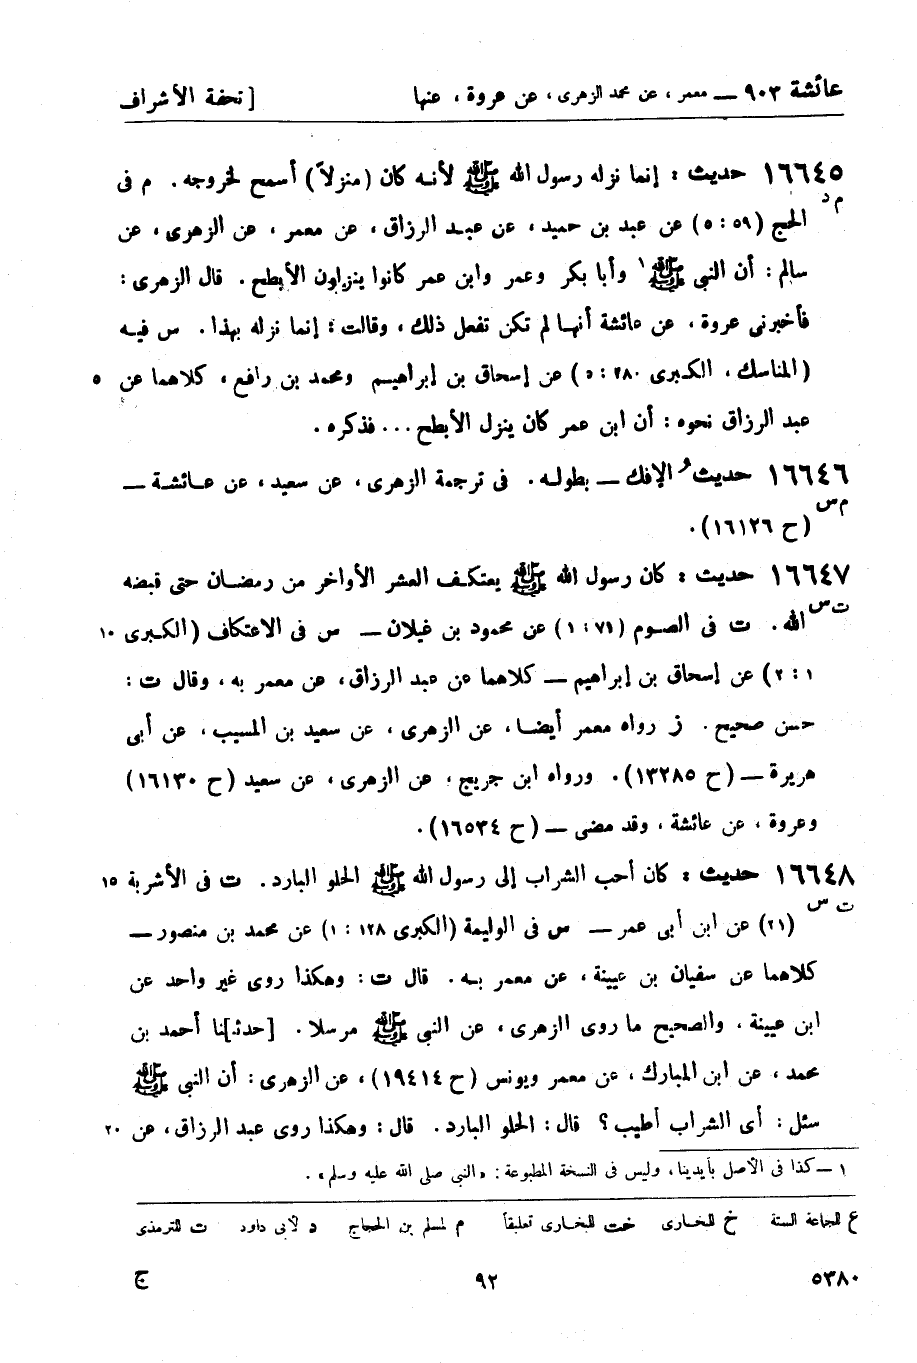 عائشة ٩٠٣ — معمر ، عن محمد الزهرى ، عن عروة ، عنها [ تحفة الأشراف
١٦٦٤٥ حديث : إنما نزله رسول الله ﷺ لأنه كان (منزلاً) أسمح لخروجه . م فى
م د
الحج (٥٩ : ٥) عن عبد بن حميد ، عن عبد الرزاق ، عن معمر ، عن الزهرى ، عن
سالم : أن النبى ﷺ ١ وأبا بكر وعمر وابن عمر كانوا ينزلون الأبطح . قال الزهرى :
فأخبرنى عروة ، عن عائشة أنها لم تكن تفعل ذلك ، وقالت : إنما نزله بهذا . س فيه
(المناسك ، الكبرى ٢٨٠ : ٥) عن إسحاق بن إبراهيم ومحمد بن رافع ، كلاهما عن ٥
عبد الرزاق نحوه : أن ابن عمر كان ينزل الأبطح ... فذكره .
١٦٦٤٦ حديثُ الإفك — بطوله . فى ترجمة الزهرى ، عن سعيد ، عن عائشة —
م س
(ح ١٦١٢٦) .
١٦٦٤٧ حديث : كان رسول الله ﷺ يعتكف العشر الأواخر من رمضان حتى قبضه
ت س
الله . ت فى الصوم (٧١ : ١) عن محمود بن غيلان — س فى الاعتكاف (الكبرى ١٠
١ : ٢) عن إسحاق بن إبراهيم — كلاهما عن عبد الرزاق ، عن معمر به ، وقال ت :
حسن صحيح . ز رواه معمر أيضا ، عن الزهرى ، عن سعيد بن المسيب ، عن أبى
هريرة — (ح ١٣٢٨٥) . ورواه ابن جريج ، عن الزهرى ، عن سعيد (ح ١٦١٣٠)
وعروة ، عن عائشة ، وقد مضى — (ح ١٦٥٣٤) .
١٦٦٤٨ حديث : كان أحب الشراب إلى رسول الله ﷺ الحلو البارد . ت فى الأشربة ١٥
ت س
(٢١) عن ابن أبى عمر — س فى الوليمة (الكبرى ١٢٨ : ١) عن محمد بن منصور —
كلاهما عن سفيان بن عيينة ، عن معمر به . قال ت : وهكذا روى غير واحد عن
ابن عيينة ، والصحيح ما روى الزهرى ، عن النبى ﷺ مرسلا . [حدث]نا أحمد بن
محمد ، عن ابن المبارك ، عن معمر ويونس (ح ١٩٤١٤) ، عن الزهرى : أن النبى ﷺ
سئل : أى الشراب أطيب ؟ قال : الحلو البارد . قال : وهكذا روى عبد الرزاق ، عن ٢٠
١ — كذا فى الأصل بأيدينا ، وليس فى النسخة المطبوعة : «النبى صلى الله عليه وسلم» .
ع للجماعة الستة خ للبخارى خت للبخارى تعليقاً م لمسلم بن الحجاج د لأبى داود ت للترمذى
٥٣٨٠ ٩٢ ج